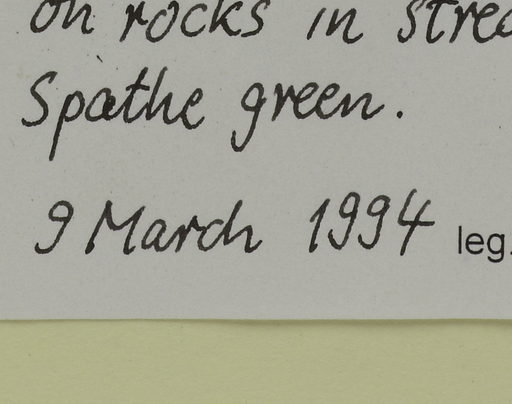 on rocks in strea
Spathe green.
9 March 1994 leg.